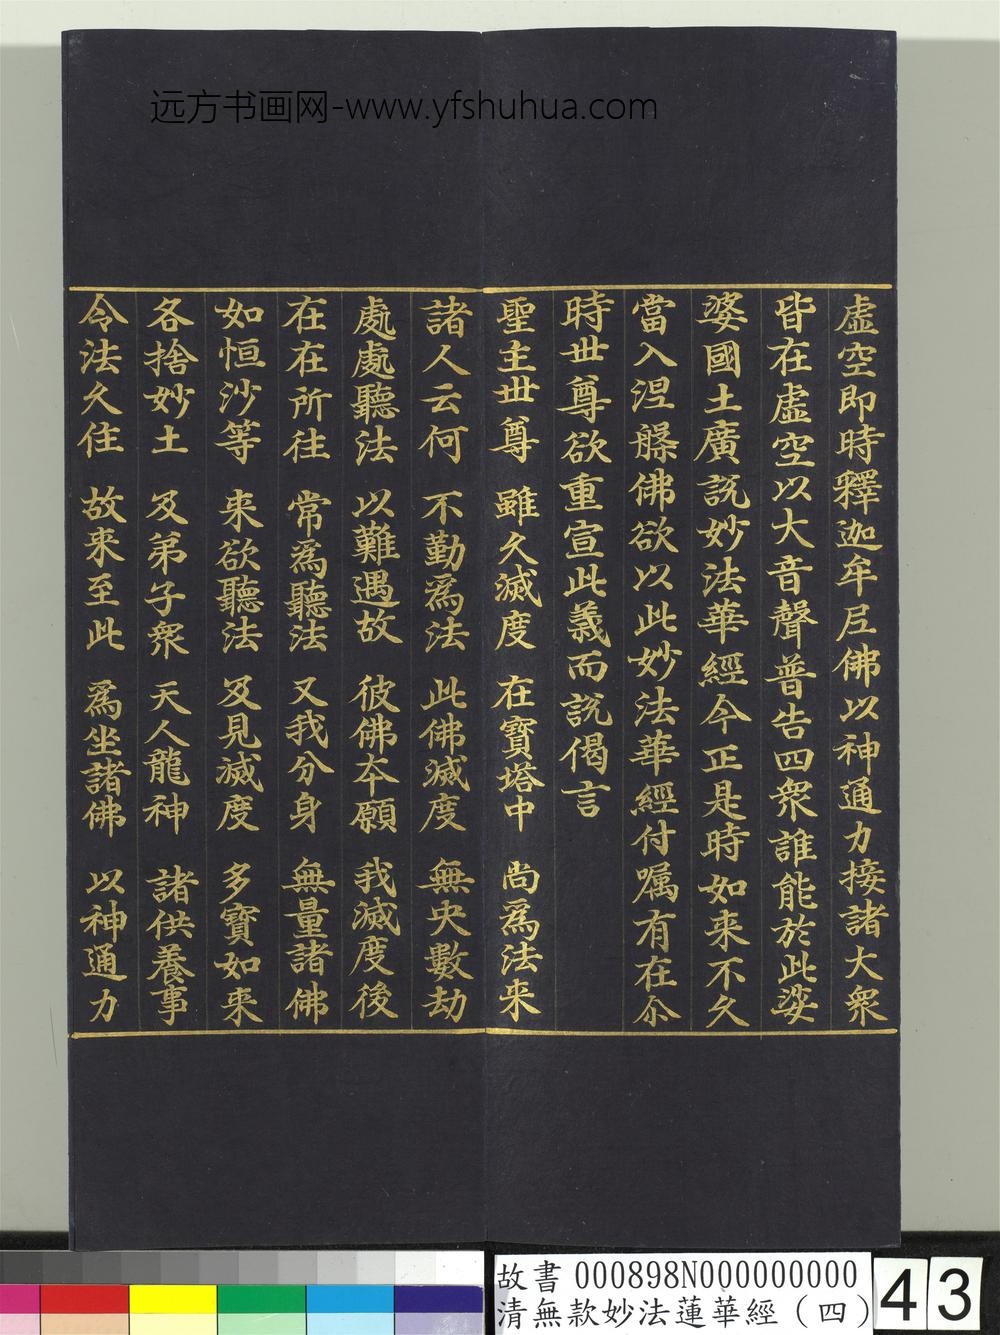 远方书画网-www.yfshuhua.com
虛空即時釋迦牟尼佛以神通力接諸大衆
皆在虛空以大音聲普告四衆誰能於此娑
婆國土廣説妙法華經今正是時如来不久
當入涅槃佛欲以此妙法華經付嘱有在尒
時世尊欲重宣此義而説偈言
聖主世尊 雖久滅度 在寶塔中 尚爲法来
諸人云何 不勤爲法 此佛滅度 無央數劫
處處聽法 以難遇故 彼佛本願 我滅度後
在在所往 常爲聽法 又我分身 無量諸佛
如恒沙等 来欲聽法 及見滅度 多寶如来
各捨妙土 及弟子衆 天人龍神 諸供養事
令法久住 故来至此 爲坐諸佛 以神通力
故書 000898N000000000
清無款妙法蓮華經（四）
43